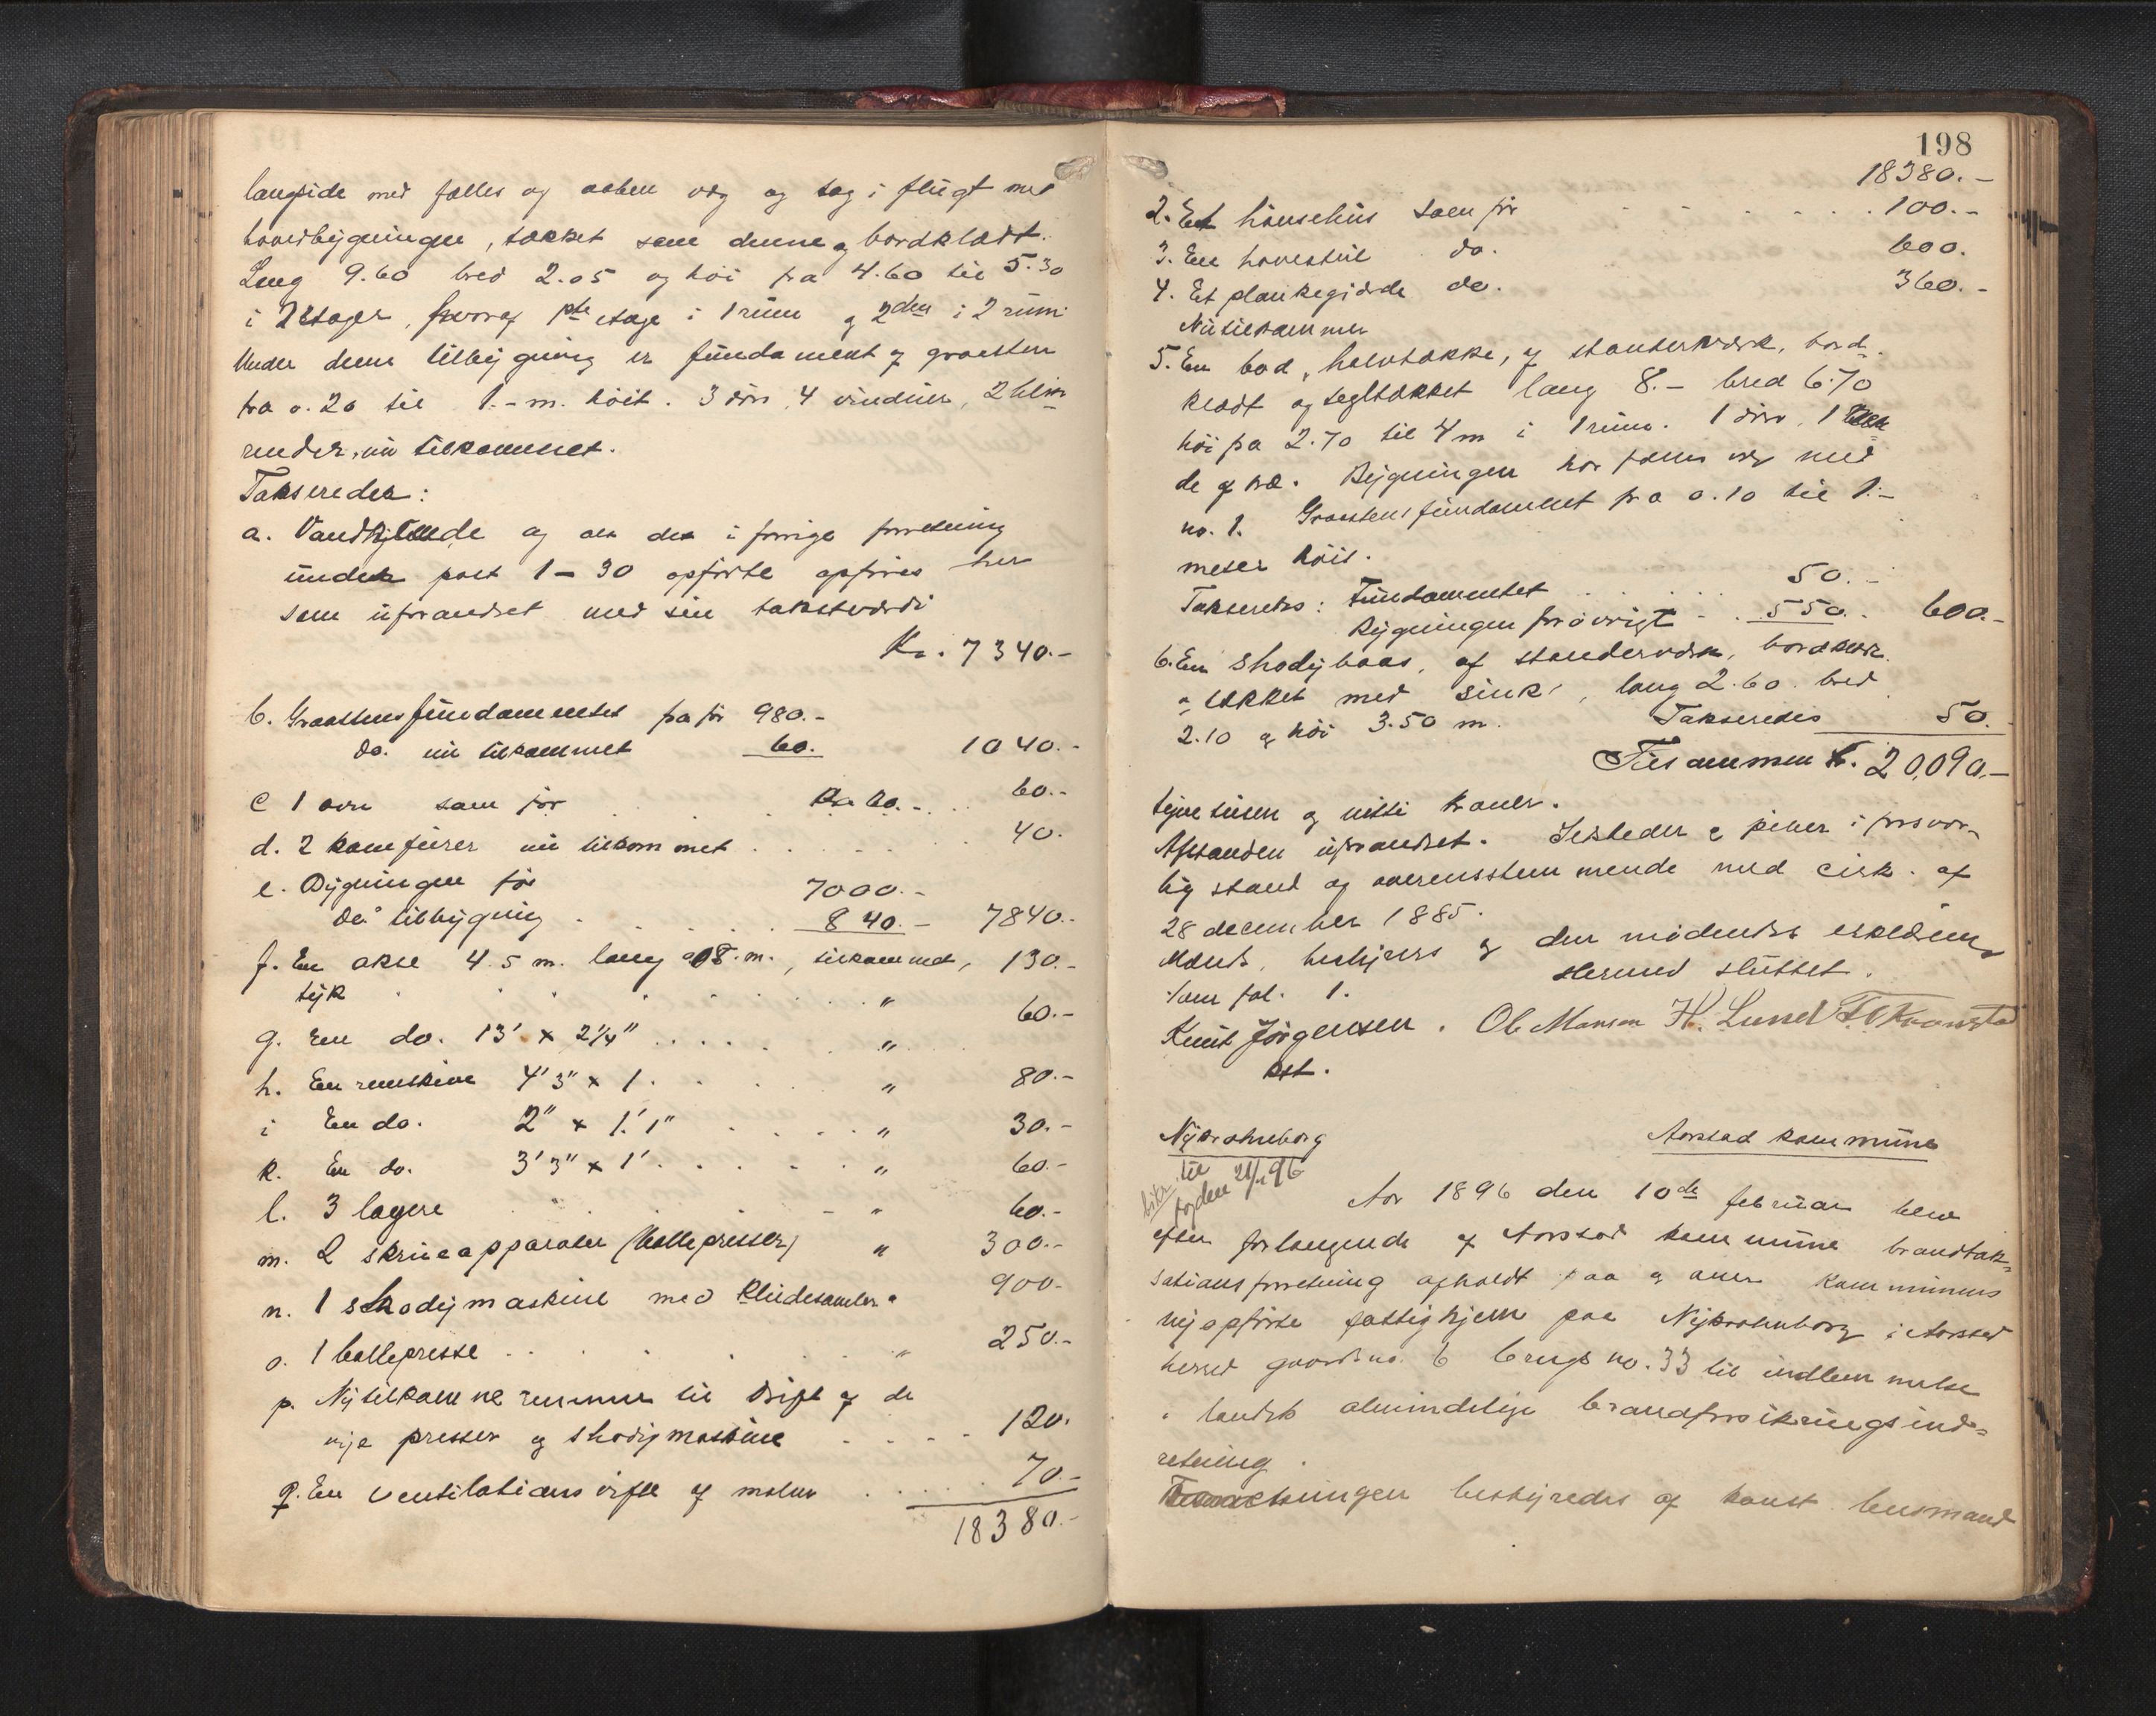 langside med fælles og aaben væg og tag i flugt med
hovedbygningen, tækket som denne og bordklædt.
Lang 9.60 bred 2.05 og höi fra 4.60 til 5.30
i 2 etager, hvoraf 1ste etage i 1 rum og 2den i 2 rum
Under denne tilbygning er fundament af graasten
fra 0.20 til 1.- m. höit. 3 döre, 4 vinduer, 2
render, nu tilkommet.
Takseredes:
a. og den i forrige forretning
under post 1-30 opförte opföres her
som uforandret med sin takstværdi
Kr. 7340.-
b. Graastensfundamentet fra för 980.-
do. nu tilkommet 60. 1040.-
c 1 ovn som för 60.-
d. 2 komfurer nu tilkommet 40.
e. Bygningen för 7000.-
Do tilbygning 840.- 7840.-
f. En akse 4.5 m. lang 08. m., tilkommet, 130.-
tyk "
g. En do. 13' x 2¼" " 60.-
h. En remskive 4'3" x 1 " 80.-
i En do. 2" x 1'.1" " 30.-
k. En do. 3'3" x 1' " 60.-
l. 3 lagere " 60.-
m. 2 skrueapparater (ballepresser) " 300.-
n. 1 shodymaskine med " 900.-
o. 1 ballepresse " 250.-
p. Nytilkomne remmer til drift af de
nye presser og shodymaskine 120.
q. En ventilationsvifte af 70.-
18380.-
198
18380.-
2. Et hönsehus som för 100.-
3. En havestue do. 600.
4. Et plankegjærde do. 360.-
Nutilkommen
5. En bod, halvtække, af standerværk, bord-
klædt og tegltækket lang 8.- bred 6.70
höi fra 2.70 til 4 m i 1 rum. 1 dör, 1
de af træ. Bygningen har fælles væg med
no. 1. Graastensfundamentet fra 0.10 til 1.-
meter höit.
Takseredes: Fundamentet 50.-
Bygningen forövrigt 550.- 600.-
6. En Shodybaas, af standerværk, bordklædt
og tækket med sink, lang 2.60. bred
2.10 og höi 3.50 m. Takseredes 50.
Tilsammen Kr. 20,090.-
tyve tusen og nitti kroner.
Afstanden uforandret. Ildsteder og piber i forsvar-
lig stand og overensstemmende med cirk. af
28 december 1885.
Mænds, bestyrers og den mödendes erklæring
som fol. 1. Hermed sluttet.
Knut Jörgensen. Ole Monsen H. Lund
kst.
Nykrohnborg Aarstad kommune
til
fogden 21/2 96
Aar 1896 den 10de februar blev
efter forlangende af Aarstad kommune brandtak-
sationsforretning afholdt paa og over kommunens
nyopförte fattighjem paa Nykrohnborg i Aarstad
herred gaards no. 6 brugs no. 33 til indlemmelse
i landets almindelige brandforsikringsind-
retning.
Forretningen bestyredes af konst. lensmand